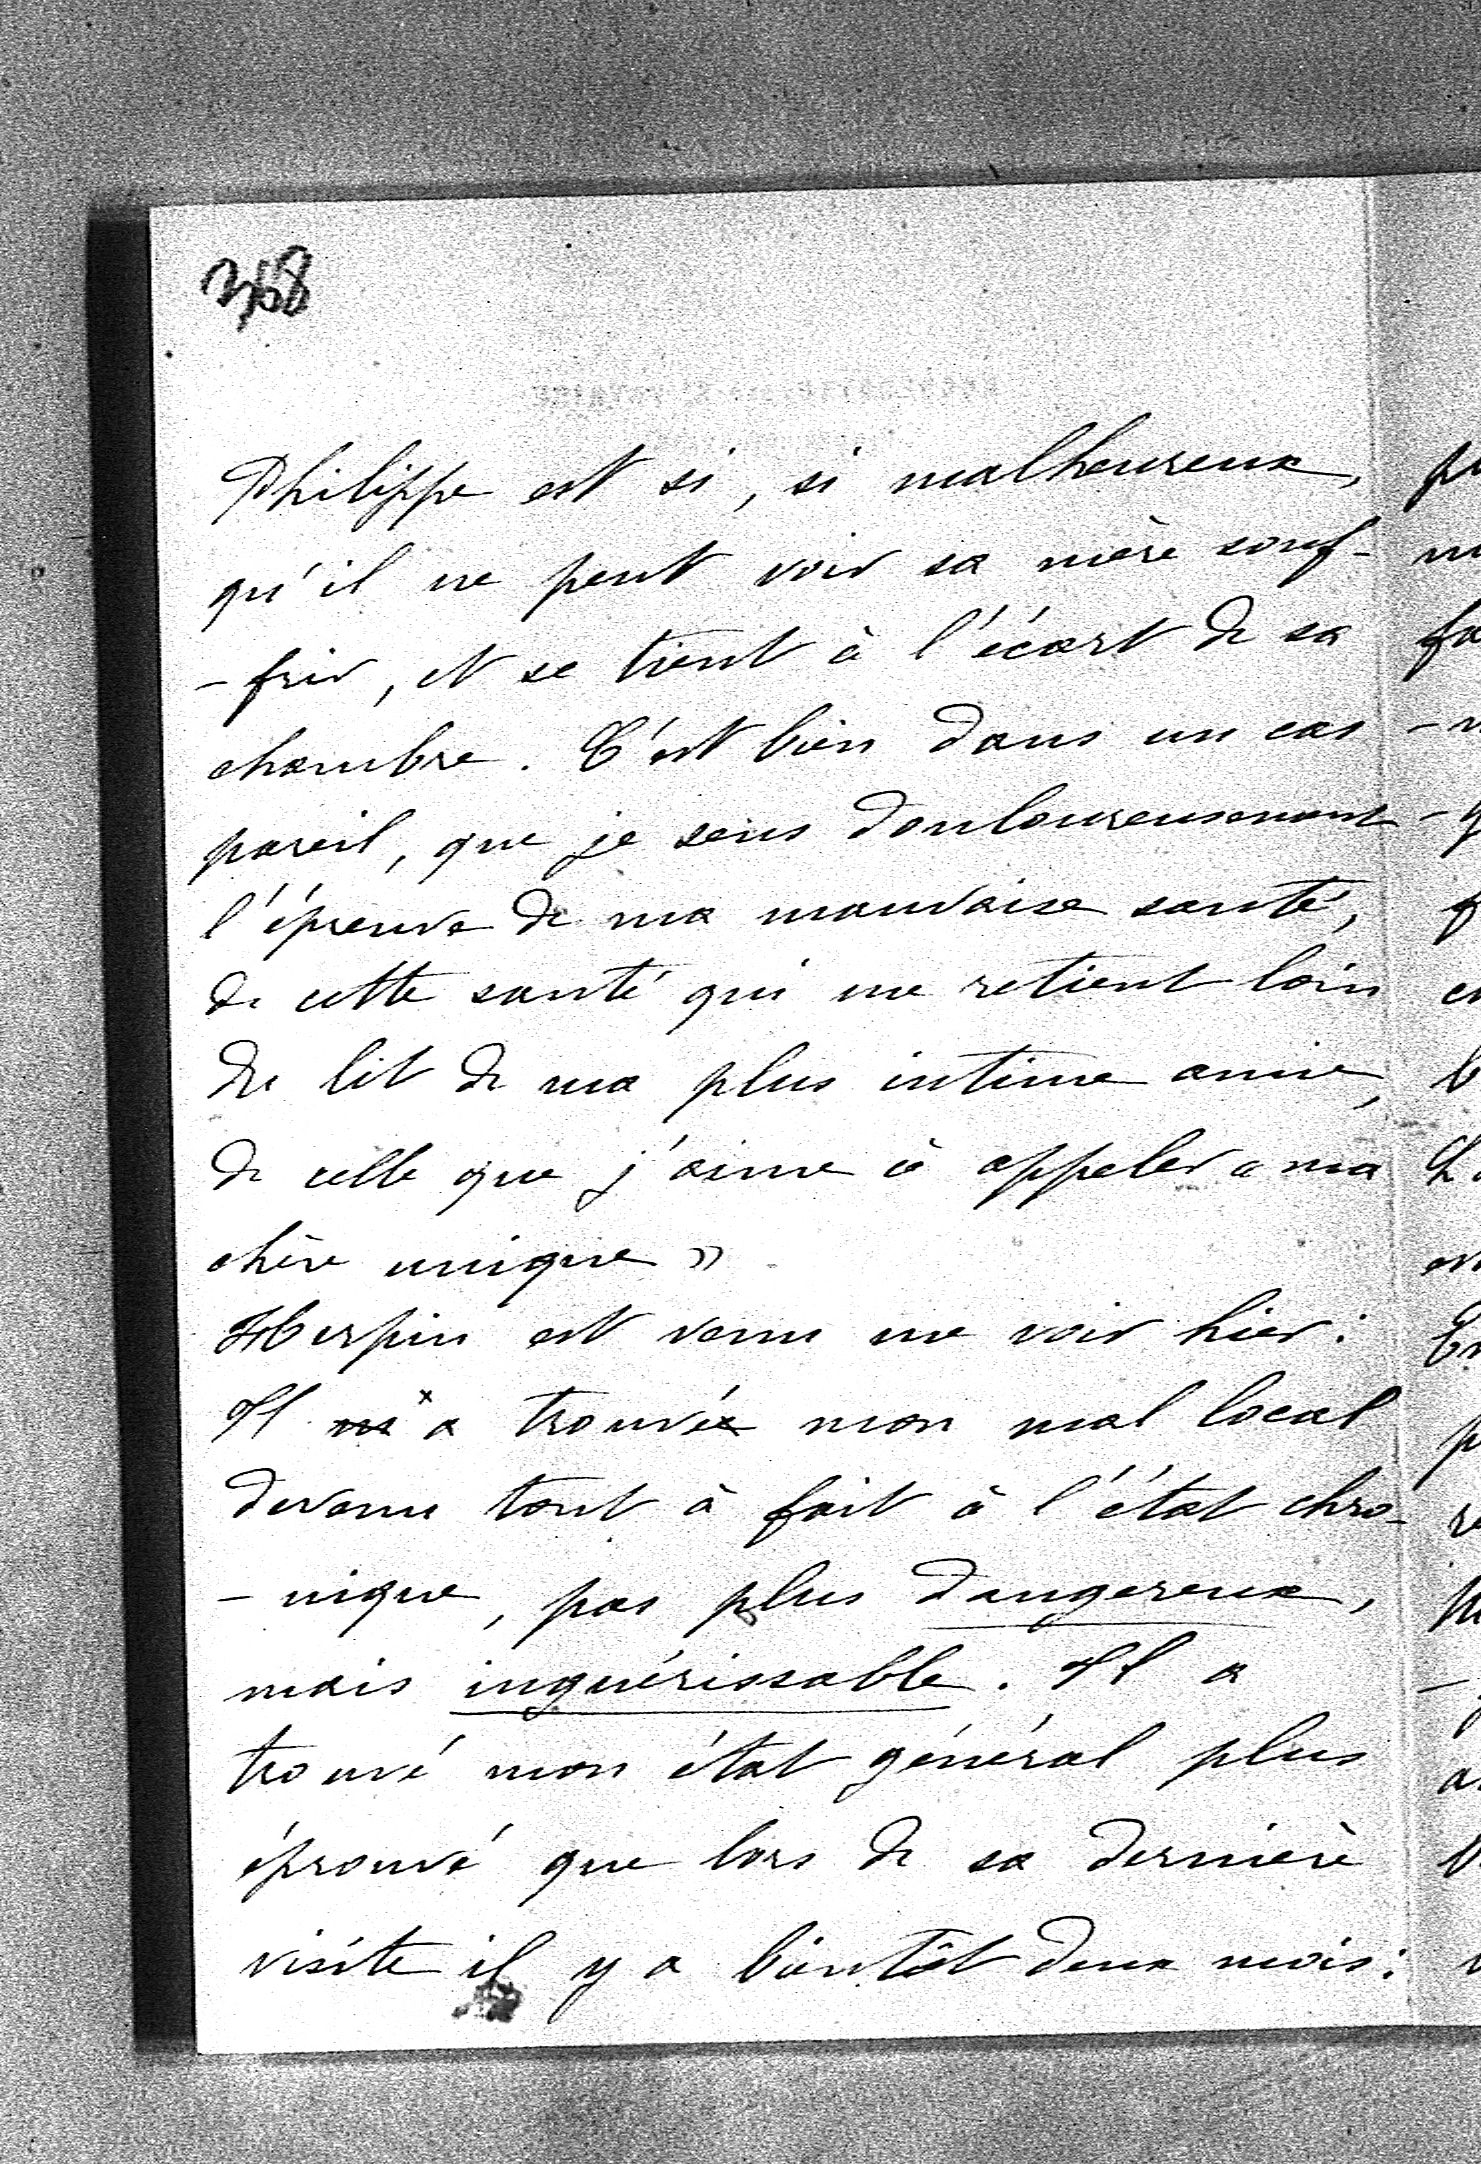 368
Philippe est si, si malheureux,
qu'il ne peut voir sa mère souf-
-frir, et se tient à l'écart de sa
chambre. C'est bien dans un cas
pareil, que je sens douloureusement
l'épreuve de ma mauvaise santé,
de cette santé qui me retient loin
du lit de ma plus intime amie,
de celle que j'aime à appeler « ma
chère unique »
Herpin est venu me voir hier :
Il m'a trouvé mon mal local
devenu tout à fait à l'état chro-
-nique, pas plus dangereux,
mais inguérissable. Il a
trouvé mon état général plus
éprouvé que lors de sa dernière
visite il y a bientôt deux mois :